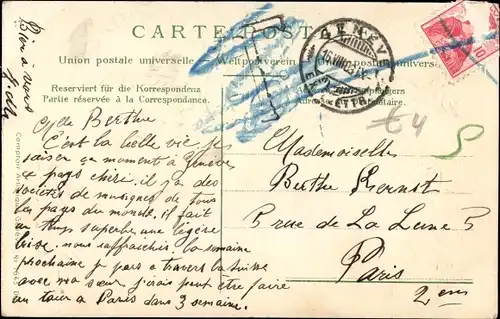 CARTE POSTALE
Union postale universelle. Weltpostverein
Reserviert für die Korrespondenz
Partie réservée à la Correspondance.
GENÈVE
10
64
Bien à vous
Mlle Berthe
C'est la belle vie je
en ce moment à Genève
pays chéri. il y a des
sociétés de musiques de tous
les pays du monde. il fait
un temps superbe une légère
bise, nous raffraichis la semaine
prochaine je pars a travers la suisse
avec ma sœur j'irais peut être faire
un tour à Paris dans 3 semaine.
Mademoiselle
Berthe
5 rue de La Lune 5
Paris
2em